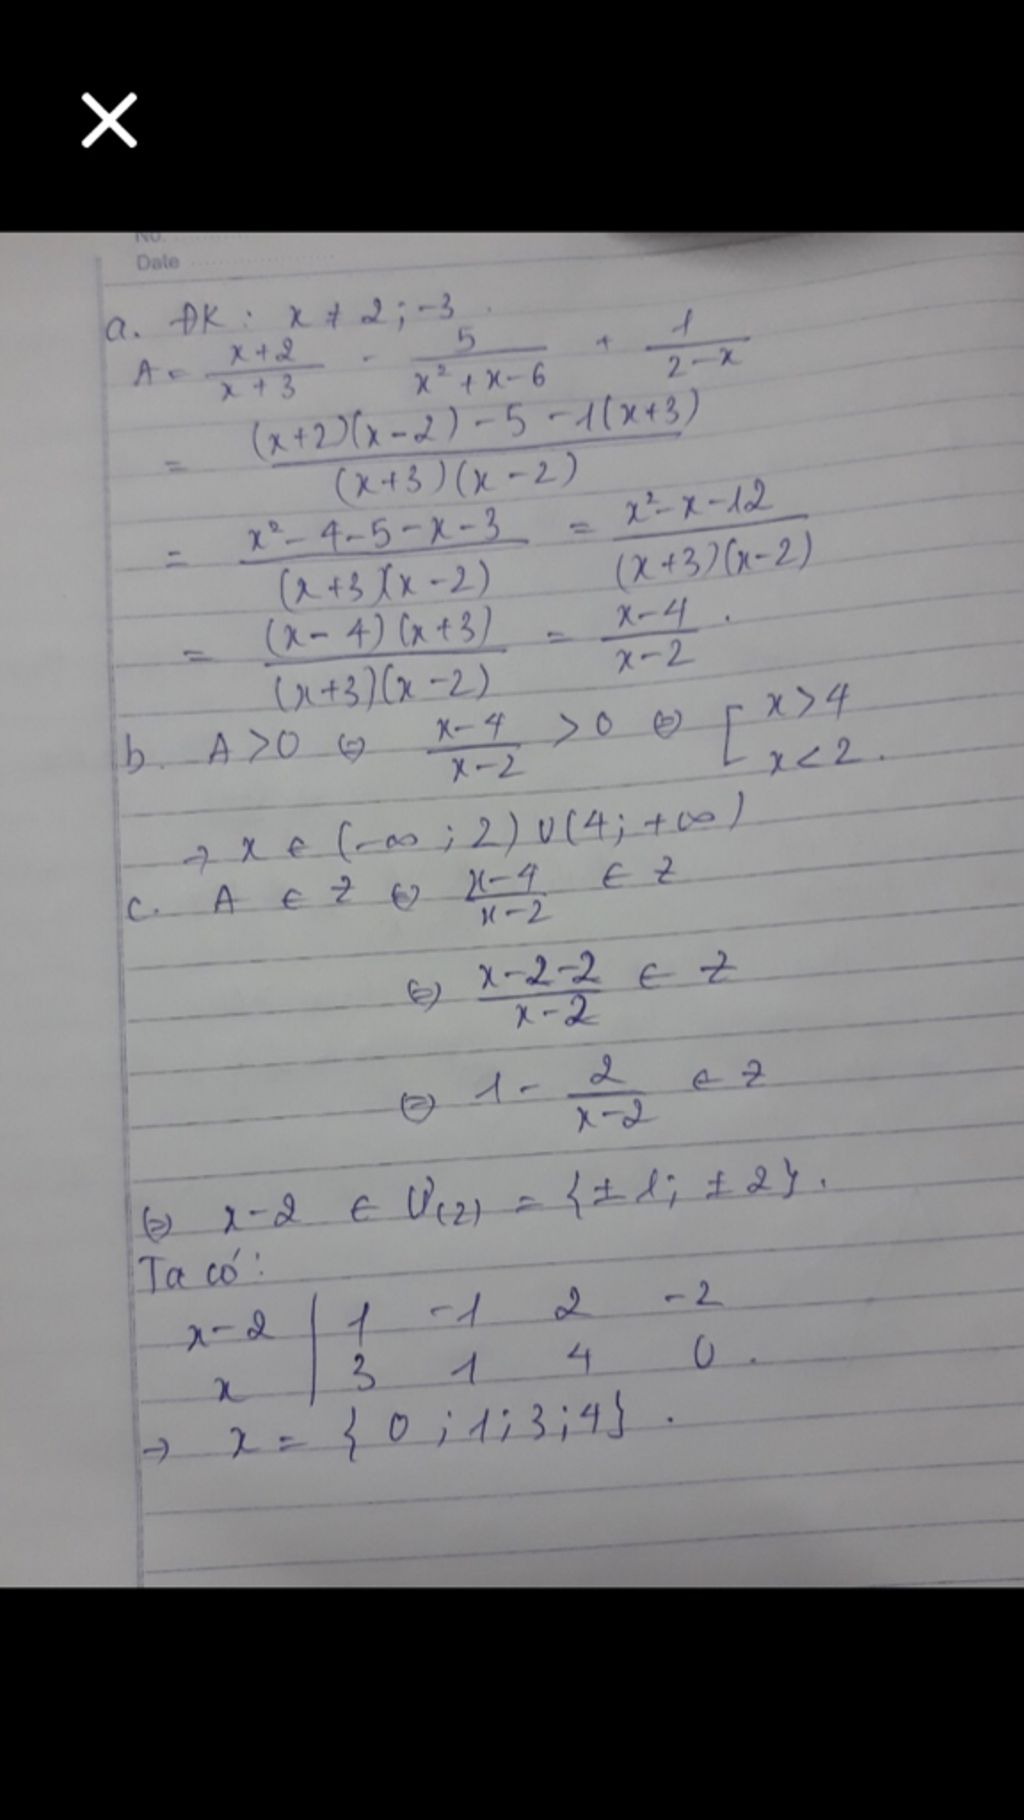 No. ............
Date ......................
a. ĐK : x ≠ 2 ; -3 .
A = \frac{x+2}{x+3} - \frac{5}{x² + x - 6} + \frac{1}{2-x}
= \frac{(x+2)(x-2) - 5 - 1(x+3)}{(x+3)(x-2)}
= \frac{x² - 4 - 5 - x - 3}{(x+3)(x-2)} = \frac{x² - x - 12}{(x+3)(x-2)}
= \frac{(x-4)(x+3)}{(x+3)(x-2)} = \frac{x-4}{x-2} .
b. A > 0 ⇔ \frac{x-4}{x-2} > 0 ⇔ [ x > 4
x < 2 .
→ x ∈ (-∞ ; 2) ∪ (4 ; +∞)
c. A ∈ Z ⇔ \frac{x-4}{x-2} ∈ Z
⇔ \frac{x-2-2}{x-2} ∈ Z
⇔ 1 - \frac{2}{x-2} ∈ Z
⇔ x-2 ∈ Ư(2) = {±1; ±2} .
Ta có :
x-2 | 1 -1 2 -2
x | 3 1 4 0 .
→ x = { 0 ; 1 ; 3 ; 4 } .